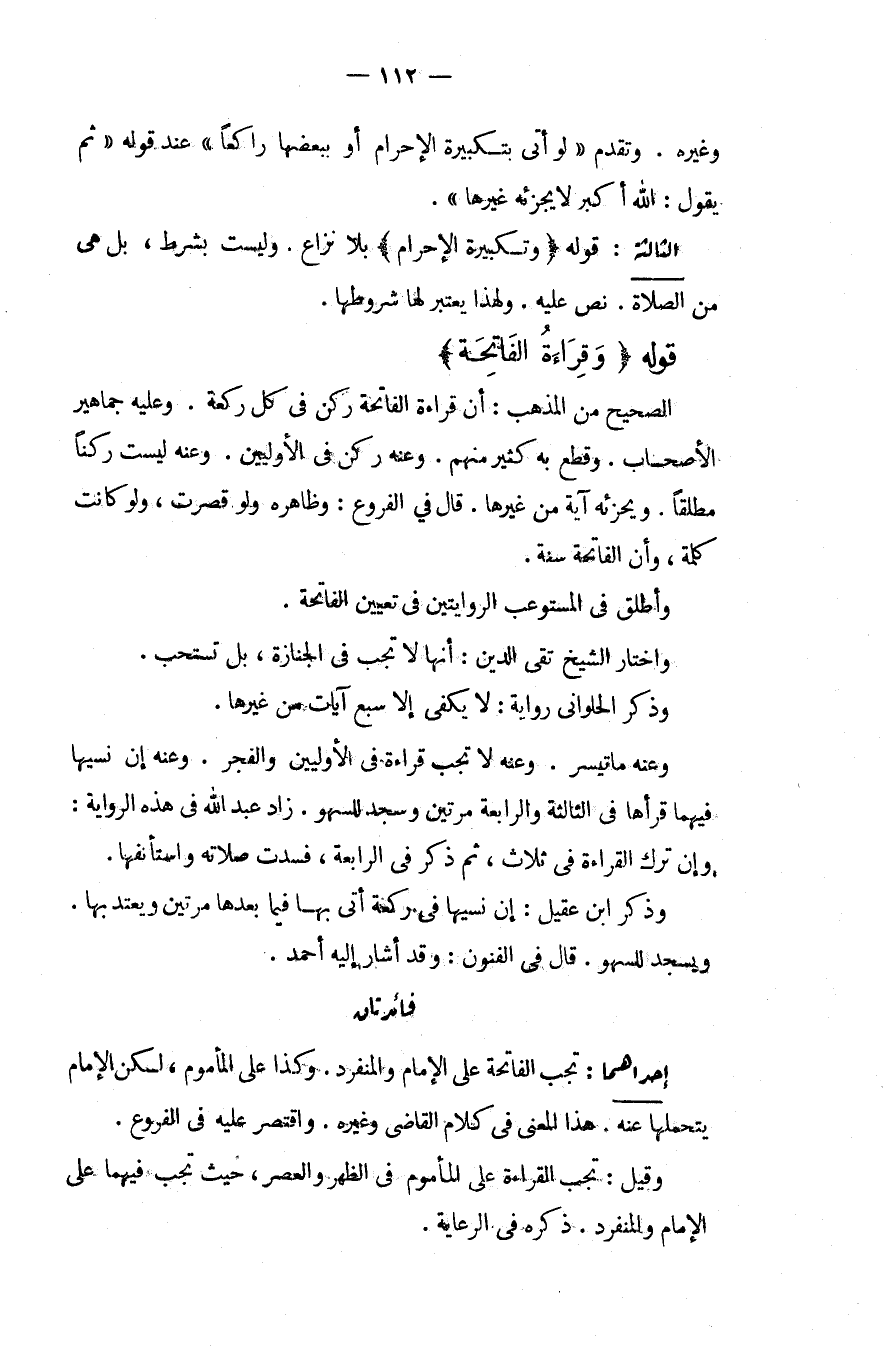 — ١١٢ —
وغيره . وتقدم « لو أتى بتكبيرة الإحرام أو ببعضها راكعاً » عند قوله « ثم
يقول : الله أكبر لا يجزئه غيرها » .
الثالثة : قوله ﴿ وتكبيرة الإحرام ﴾ بلا نزاع . وليست بشرط ، بل هى
من الصلاة . نص عليه . ولهذا يعتبر لها شروطها .
قوله ﴿ وَقِرَاءَةُ الفَاتِحَة ﴾
الصحيح من المذهب : أن قراءة الفاتحة ركن فى كل ركعة . وعليه جماهير
الأصحاب . وقطع به كثير منهم . وعنه ركن فى الأوليين . وعنه ليست ركناً
مطلقاً . ويجزئه آية من غيرها . قال في الفروع : وظاهره ولو قصرت ، ولو كانت
كلمة ، وأن الفاتحة سنة .
وأطلق فى المستوعب الروايتين فى تعيين الفاتحة .
واختار الشيخ تقى الدين : أنها لا تجب فى الجنازة ، بل تستحب .
وذكر الحلوانى رواية : لا يكفى إلا سبع آيات من غيرها .
وعنه ماتيسر . وعنه لا تجب قراءة فى الأوليين والفجر . وعنه إن نسيها
فيهما قرأها فى الثالثة والرابعة مرتين وسجد للسهو . زاد عبد الله فى هذه الرواية :
وإن ترك القراءة فى ثلاث ، ثم ذكر فى الرابعة ، فسدت صلاته واستأنفها .
وذكر ابن عقيل : إن نسيها فى ركعة أتى بها فيما بعدها مرتين ويعتد بها .
ويسجد للسهو . قال فى الفنون : وقد أشار إليه أحمد .
فائدتان
إحداهما : تجب الفاتحة على الإمام والمنفرد . وكذا على المأموم ، لكن الإمام
يتحملها عنه . هذا المعنى فى كلام القاضى وغيره . واقتصر عليه فى الفروع .
وقيل : تجب القراءة على المأموم فى الظهر والعصر ، حيث تجب فيهما على
الإمام والمنفرد . ذكره فى الرعاية .